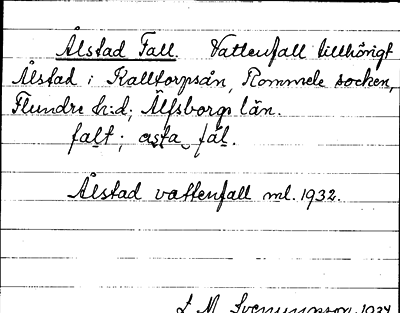 Ålstad Fall. Vattenfall tillhörigt
Ålstad i Kalltorpsån, Rommele socken,
Flundre h:d, Älfsborgs län.
falt; asta fal.
Ålstad vattenfall ml. 1932.
L M Svenungsson 1934